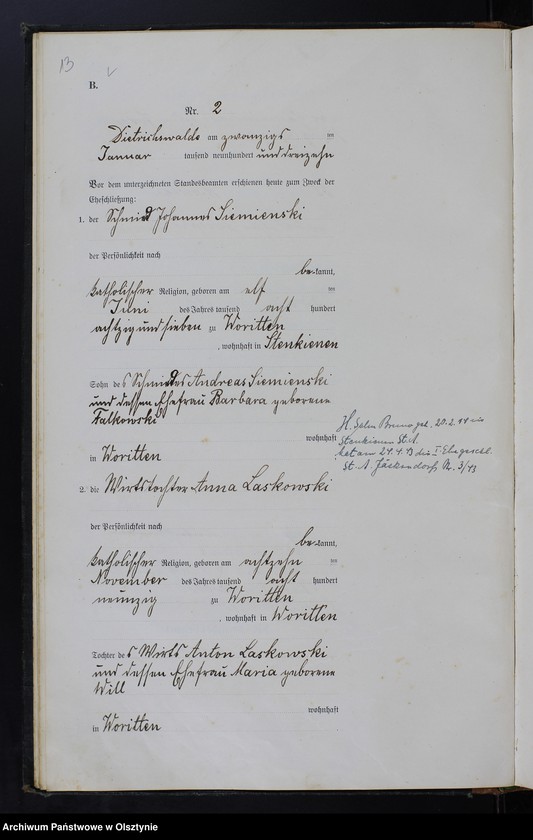 13
B.
Nr. 2
Dietrichswalde am zwanzigs ten
Januar tausend neunhundert und dreizehn
Vor dem unterzeichneten Standesbeamten erschienen heute zum Zweck der
Eheschließung:
1. der Schmied Johannes Siemienski
der Persönlichkeit nach
be kannt,
katholischer Religion, geboren am elf ten
Juni des Jahres tausend acht hundert
achtzig und sieben zu Woritten
, wohnhaft in Stenkienen
Sohn des Schmiedes Andreas Siemienski
und dessen Ehefrau Barbara geborene
Falkowski
wohnhaft
in Woritten
H. Sohn Bruno geb. 20.2.14 in
Stenkienen St.A.
hat am 24.4.43 die I. Ehe geschl.
St. A. Jäckendorf N. 3/43
2. die Wirtstochter Anna Laskowski
der Persönlichkeit nach
be kannt,
katholischer Religion, geboren am achtzehn ten
November des Jahres tausend acht hundert
neunzig zu Woritten
, wohnhaft in Woritten
Tochter des Wirts Anton Laskowski
und dessen Ehefrau Maria geborene
Will
wohnhaft
in Woritten
Archiwum Państwowe w Olsztynie